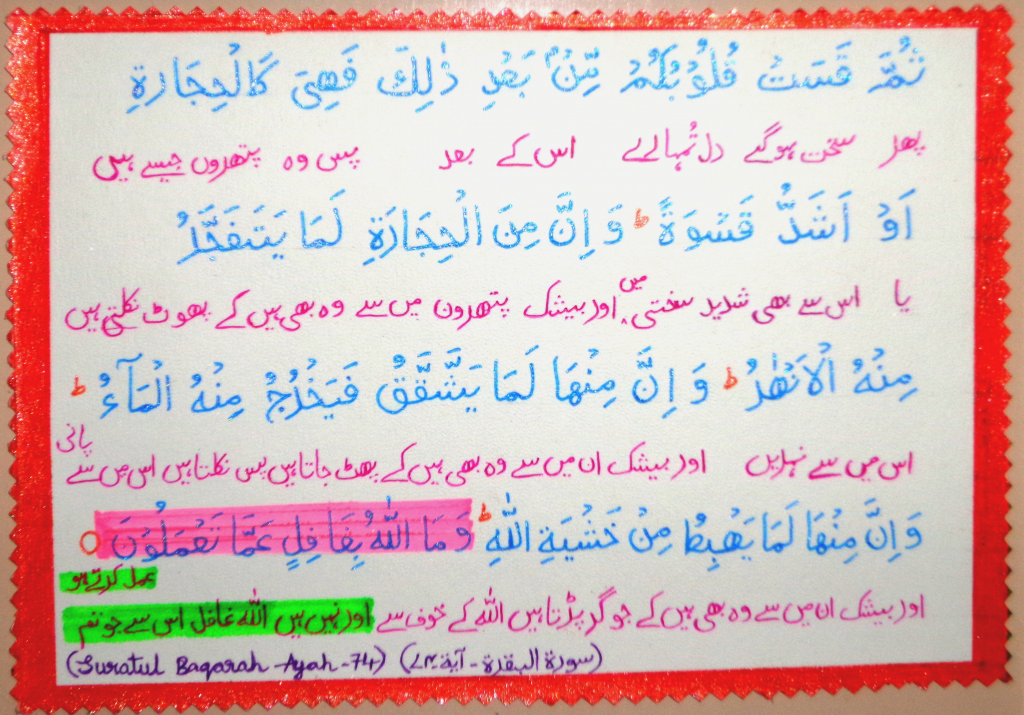 ثُمَّ قَسَتْ قُلُوْبُكُمْ مِّنْۢ بَعْدِ ذٰلِكَ فَهِىَ كَالْحِجَارَةِ
پھر سخت ہوگئے دل تُمہارے اس کے بعد پس وہ پتھروں جیسے ہیں
اَوْ اَشَدُّ قَسْوَةً ؕ وَ اِنَّ مِنَ الْحِجَارَةِ لَمَا يَتَفَجَّرُ
یا اس سے بھی شدید سختی میں اور بیشک پتھرون میں سے وہ بھی ہیں کے پھوٹ نکلتی ہیں
مِنْهُ الْاَنْهٰرُ ؕ وَ اِنَّ مِنْهَا لَمَا يَشَّقَّقُ فَيَخْرُجُ مِنْهُ الْمَآءُ ؕ
اس میں سے نہریں اور بیشک ان میں سے وہ بھی ہیں کے پھٹ جاتا ہیں پس نکلتا ہیں اس میں سے پانی
وَ اِنَّ مِنْهَا لَمَا يَهْبِطُ مِنْ خَشْيَةِ اللّٰهِ ؕ وَ مَا اللّٰهُ بِغَافِلٍ عَمَّا تَعْمَلُوْنَ ○
اور بیشک ان میں سے وہ بھی ہیں کے جو گر پڑتا ہیں اللّٰہ کے خوف سے اور نہیں ہیں اللّٰہ غافل اس سے جو تم عمل کرتے ہو
(Suratul Baqarah - Ayah - 74) (سورة البقرة - آية - ٧٤)